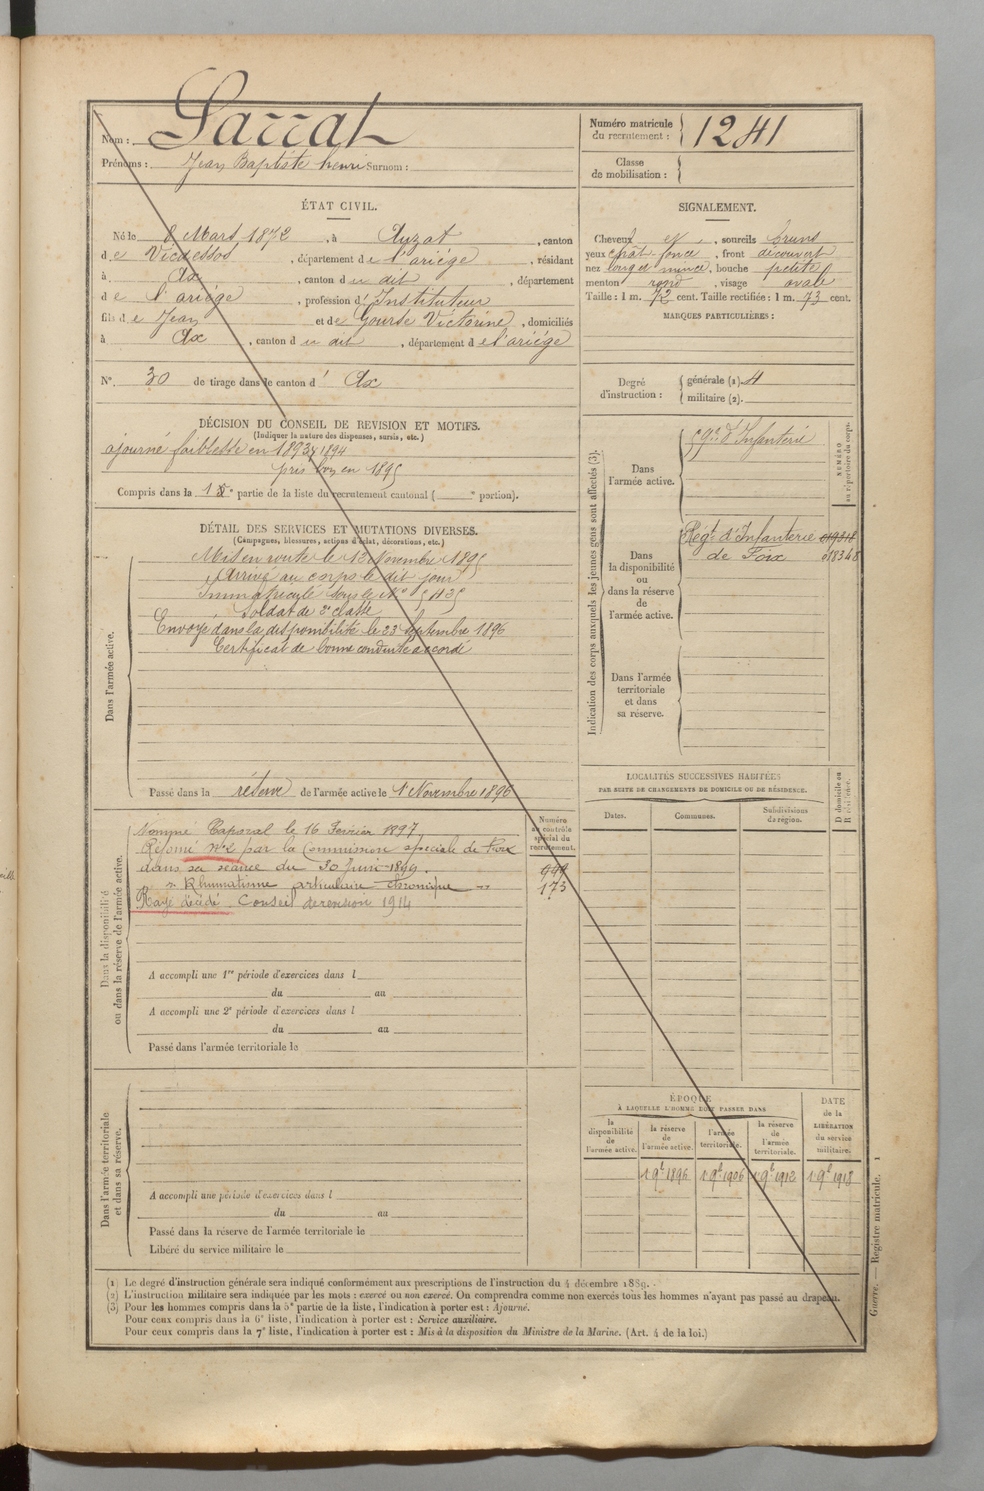 Nom : Sarrat
Prénoms : Jean Baptiste henri Surnom :
Numéro matricule du recrutement : 1241
Classe de mobilisation :
ÉTAT CIVIL.
Né le 8 Mars 1872, à Auzat, canton
de Vicdessos, département de l'ariége, résidant
à Ax, canton du dit, département
de l'ariége, profession d'Instituteur
fils de Jean et de Gourde Victorine, domiciliés
à Ax, canton du dit, département de l'ariége
N° 30 de tirage dans le canton d' Ax
SIGNALEMENT.
Cheveux et, sourcils bruns
yeux chât. foncé, front découvert
nez long mince, bouche petite
menton rond, visage ovale
Taille : 1 m. 72 cent. Taille rectifiée : 1 m. 73 cent.
MARQUES PARTICULIÈRES :
Degré d'instruction :
générale (1). 4
militaire (2).
DÉCISION DU CONSEIL DE REVISION ET MOTIFS.
(Indiquer la nature des dispenses, sursis, etc.)
ajourné faiblesse en 1893, 1894
pris bon en 1895
Compris dans la 1e partie de la liste du recrutement cantonal ( e portion).
DÉTAIL DES SERVICES ET MUTATIONS DIVERSES.
(Campagnes, blessures, actions d'éclat, décorations, etc.)
Dans l'armée active.
Mis en route le 13 Novembre 1895
Arrivé au corps le dit jour
Immatriculé sous le N° 5435
Soldat de 2e classe
Envoyé dans la disponibilité le 23 Septembre 1896
Certificat de bonne conduite accordé
Passé dans la réserve de l'armée active le 1 Novembre 1896
Indication des corps auxquels les jeunes gens sont affectés (3).
NUMÉRO au répertoire du corps.
Dans l'armée active.
59e d'Infanterie
Dans la disponibilité ou dans la réserve de l'armée active.
Régt d'Infanterie
de Foix 018348
Dans l'armée territoriale et dans sa réserve.
LOCALITÉS SUCCESSIVES HABITÉES
PAR SUITE DE CHANGEMENTS DE DOMICILE OU DE RÉSIDENCE.
Dates. Communes. Subdivisions de région. D domicile ou R résidence.
Dans la disponibilité ou dans la réserve de l'armée active.
Numéro au contrôle spécial du recrutement.
Nommé Caporal le 16 Février 1897
Réformé n°2 par la Commission spéciale de Foix
dans sa séance du 30 Juin 1899. 999
"Rhumatisme articulaire chronique" 173
Rayé décédé. Conseil de revision 1914
A accompli une 1re période d'exercices dans l
du au
A accompli une 2e période d'exercices dans l
du au
Passé dans l'armée territoriale le
Dans l'armée territoriale et dans sa réserve.
A accompli une période d'exercices dans l
du au
Passé dans la réserve de l'armée territoriale le
Libéré du service militaire le
ÉPOQUE
À LAQUELLE L'HOMME DOIT PASSER DANS
la disponibilité de l'armée active. la réserve de l'armée active. l'armée territoriale. la réserve de l'armée territoriale. DATE de la LIBÉRATION du service militaire.
1 9b 1896 1 9b 1906 1 9b 1912 1 9b 1918
(1) Le degré d'instruction générale sera indiqué conformément aux prescriptions de l'instruction du 4 décembre 1889.
(2) L'instruction militaire sera indiquée par les mots : exercé ou non exercé. On comprendra comme non exercés tous les hommes n'ayant pas passé au drapeau.
(3) Pour les hommes compris dans la 5e partie de la liste, l'indication à porter est : Ajourné.
Pour ceux compris dans la 6e liste, l'indication à porter est : Service auxiliaire.
Pour ceux compris dans la 7e liste, l'indication à porter est : Mis à la disposition du Ministre de la Marine. (Art. 4 de la loi.)
Guerre. — Registre matricule. 1